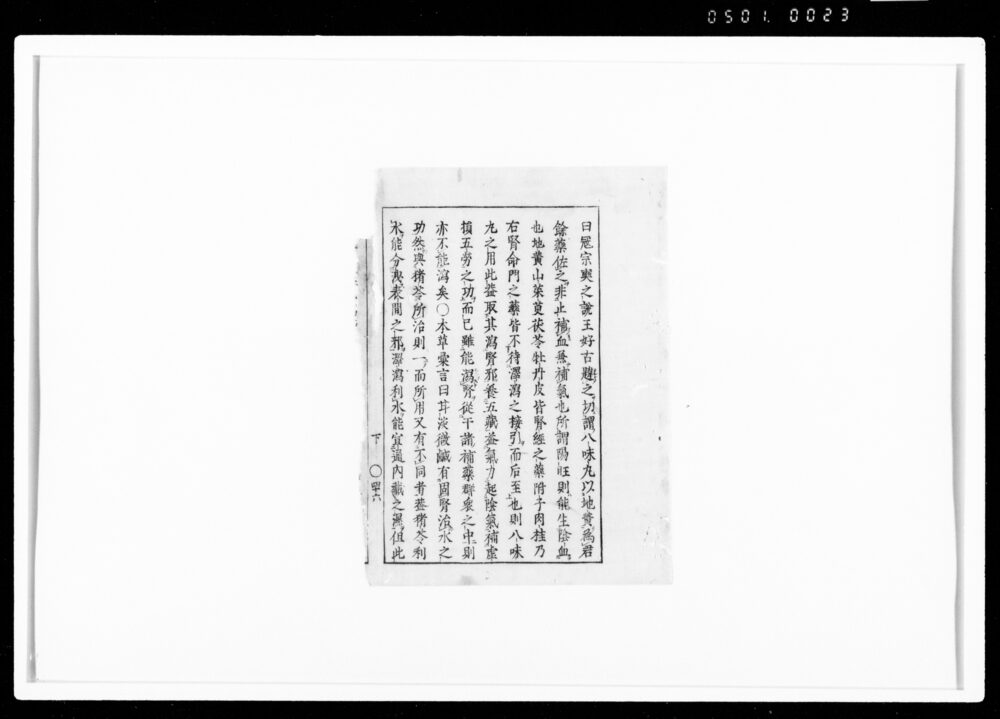 0501. 0023
曰冦宗奭之說王好古題之切謂八味丸以地黃爲君
餘藥佐之非止補血兼補氣也所謂陽旺則能生陰血
也地黃山茱萸茯苓牡丹皮皆腎經之藥附子肉桂乃
右腎命門之藥皆不待澤瀉之接引而后至也則八味
丸之用此蓋取其瀉腎邪養五臟益氣力起陰氣補虛
損五勞之功而已雖能瀉腎從于諸補藥群衆之中則
亦不能瀉矣〇本草彙言曰其淡微鹹有固腎治水之
功然與猪苓所治則一而所用又有不同者蓋猪苓利
水能分洩表間之邪澤瀉利水能宣通內臟之濕但此
下 〇四十六